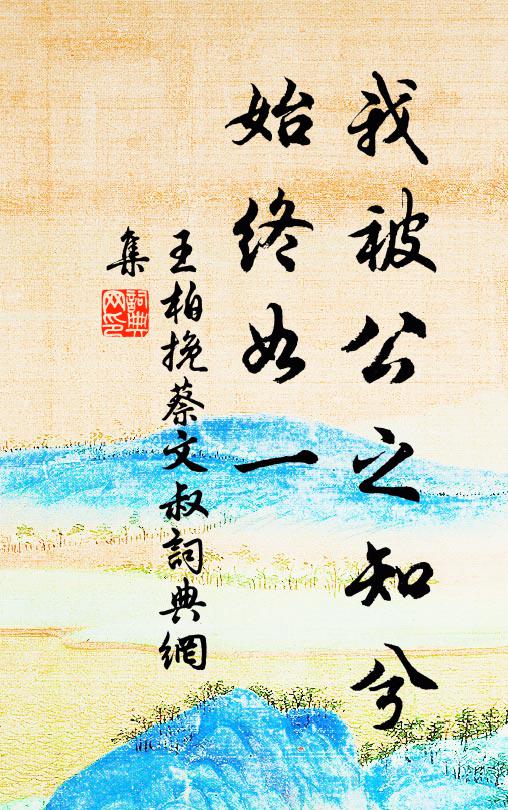 我被公之知兮
始终如一
王柏挽蔡文叔詞典網
集
詞典
网印